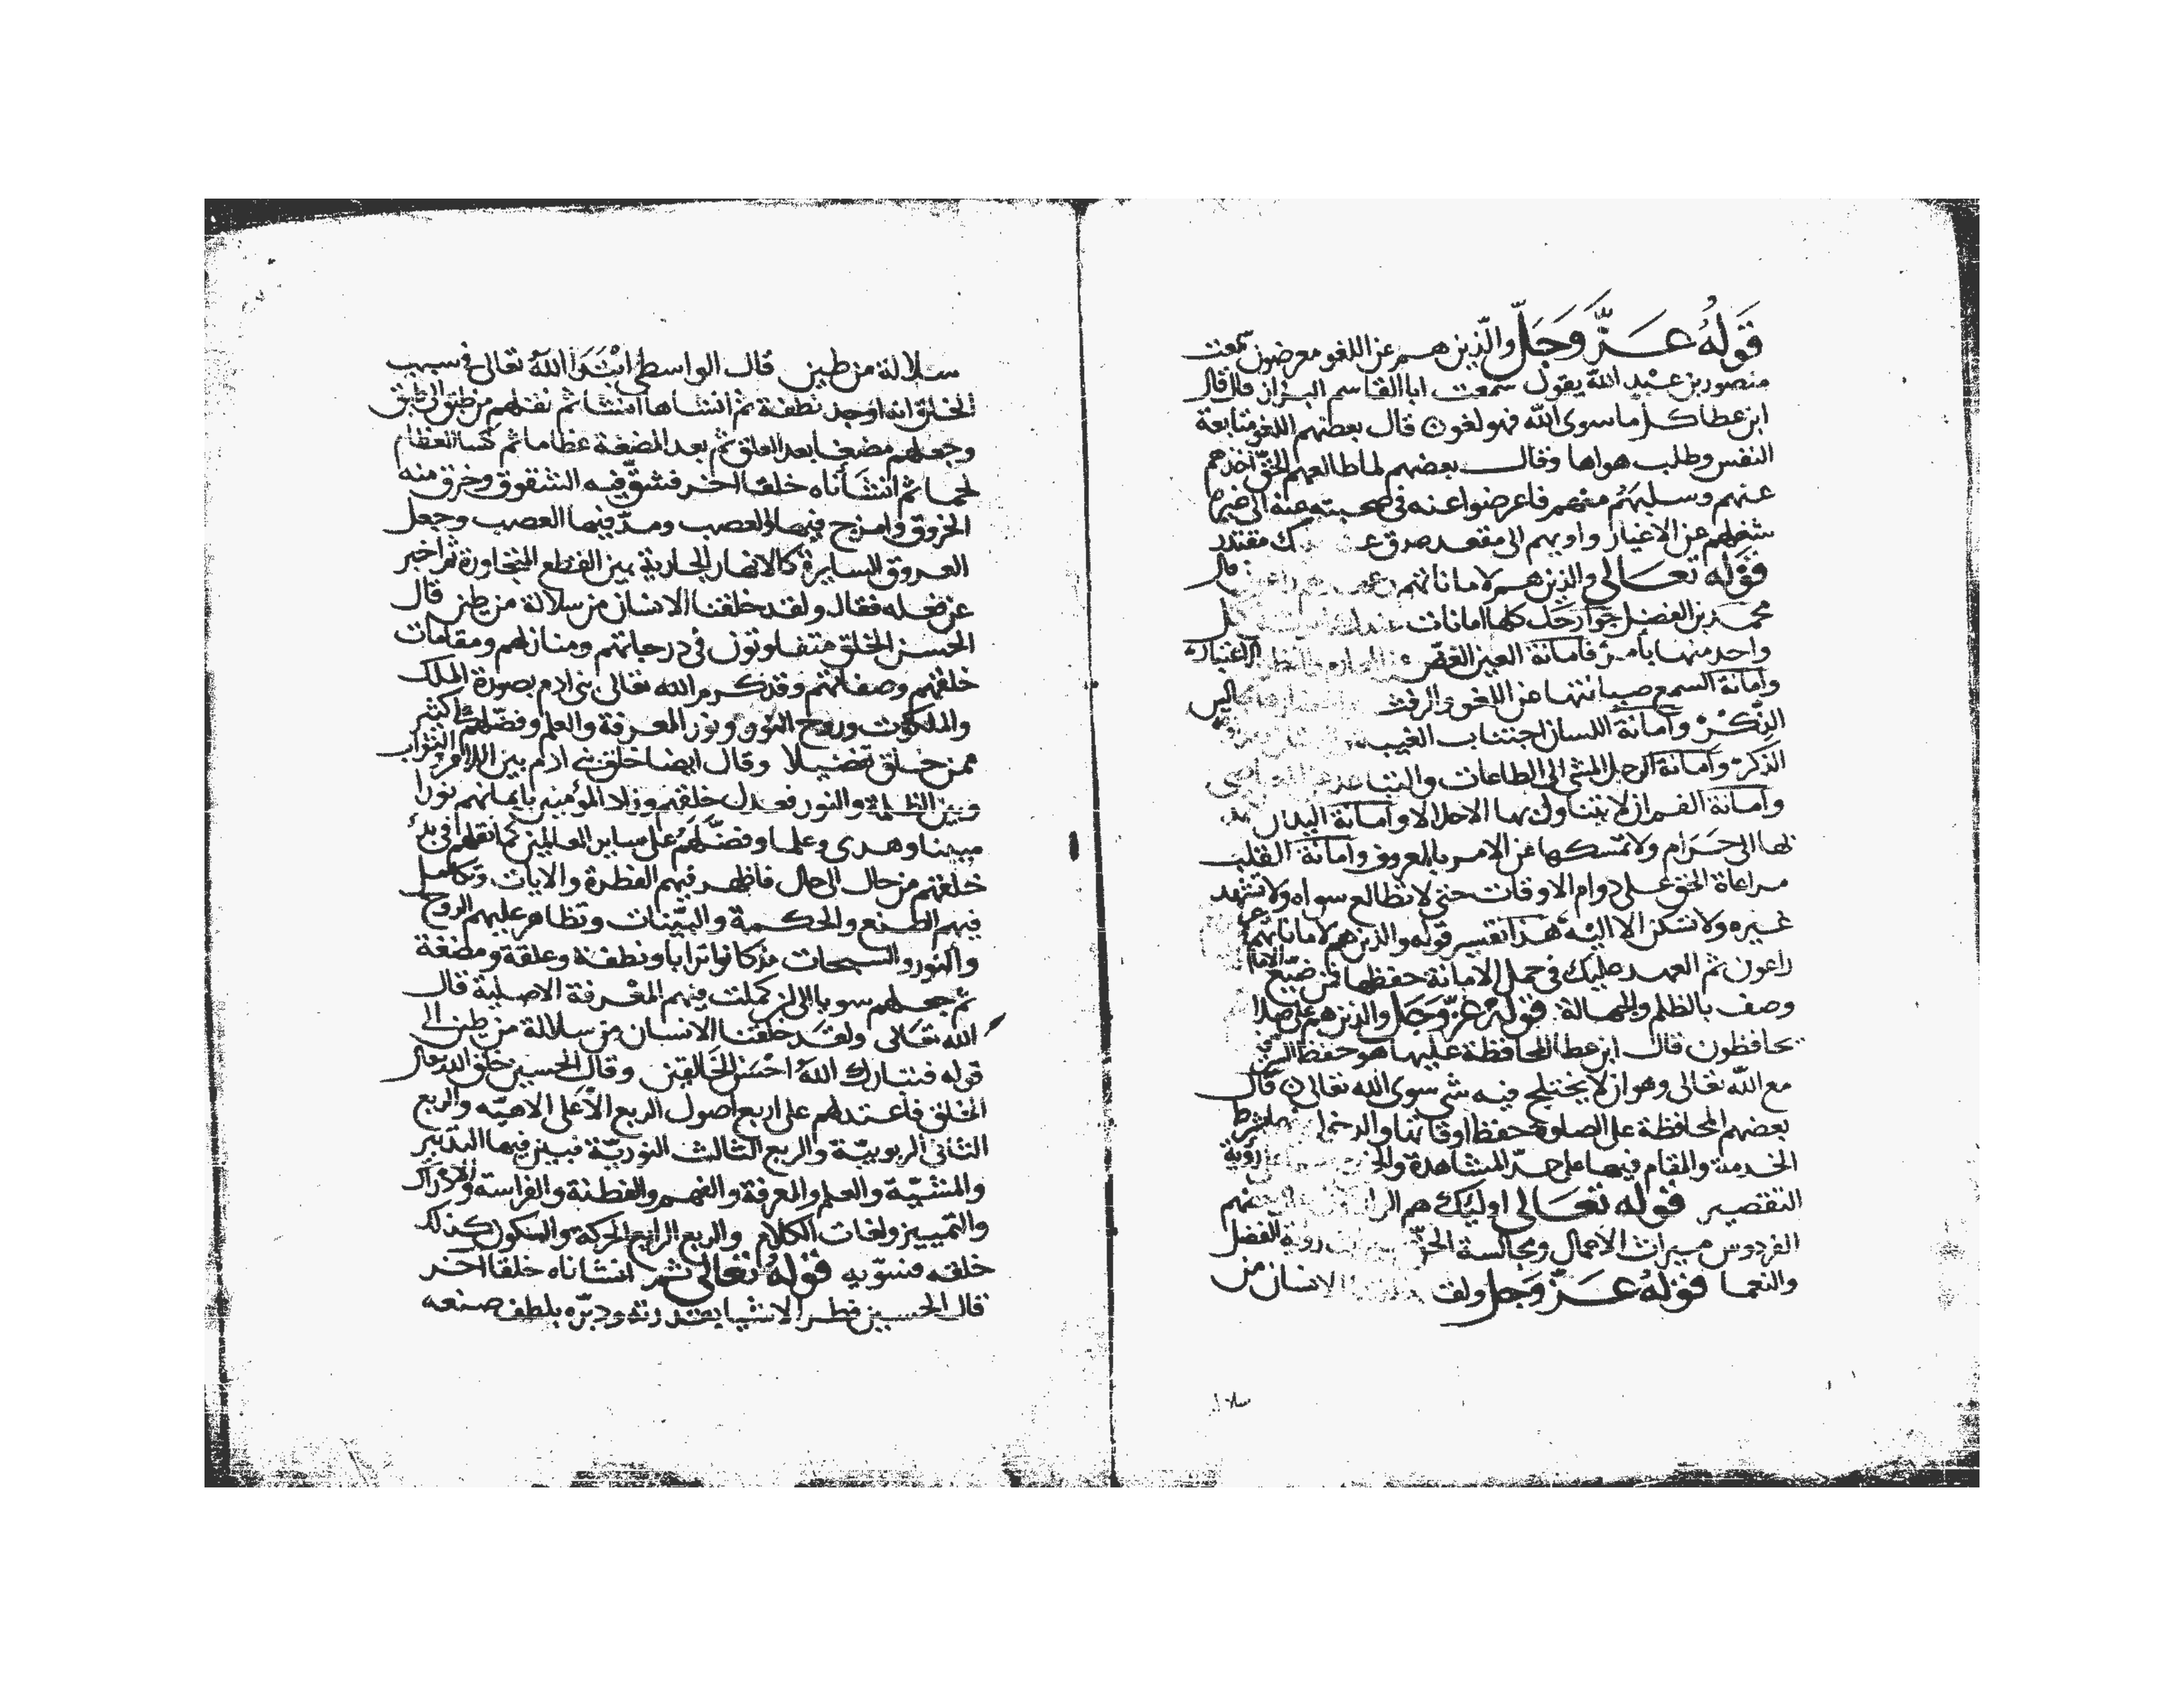 قَولُهُ عَزَّ وَجَلَّ والّذين هم عن اللغو معرضون سمعت
منصور بن عبد الله يقول سمعت ابا القاسم البزاز قال قال
ابن عطا كل ما سوى الله فهو لغو ه قال بعضهم اللغو متابعة
النفس وطلب هواها وقال بعضهم لما طالعهم الحق اخذهم
عنهم وسلبهُم منهم فاعرضوا عنه في صحبته عنه الى غيره
شغلهم عن الاغيار واويهم الى مقعد صدق مقتدر
قَوله تعالى والذين هم لاماناتهم قال
محمد بن الفضل جوارحك كلها امانات
واحد منها بامر فامانة العين الغضّ
وامانة السمع صيانتها عن اللغو والرفث
الذكر وامانة اللسان اجتناب الغيبه
الذكر وامانة الرجل المشى الى الطاعات والتباعد المعاصى
وامانة الفم ان لا يتناول بها الا حلالا وامانة اليد ان
لها الى حَرَام ولا تمسكها عن الامر بالمعروف وامانة القلب
مراعاة الحق على دوام الاوقات حتى لا تطالع سواه ولا تشهد
غيره ولا تسكن الا اليه هذا تفسير قوله والذين هم لاماناتهم
راعون ثم العهد عليك في حمل الامانة حفظها فمن ضيّع الامانة
وصف بالظلم والجهالة قوله عزّ وَجَل والذين هم على صلا
يحافظون قال ابن عطا المحافظة عليها هو حفظ السر فيه
مع الله تعالى وهو ان لا يختلج فيه شي سوى الله تعالى ه قال
بعضهم المحافظة على الصلوة حفظ اوقاتها والدخول بشرط
الخدمة والمقام فيها على حدّ المشاهدة رؤية
التقصير قوله تعَالى اوليك هم
الفردوس ميراث الاعمال ومجالسة رؤية الفضل
والنعما قَولهُ عَزّ وَجل ولقد الانسان من
سلالة
سلالة من طين قال الواسطي ابْتَدَا اللهُ تعالى في سبب
الخلق انه اوجد نطفة ثم انشاها انشا ثم نقلهم من طبق الى طبق
وجعلهم مضغا بعد العلق ثم بعد المضغة عظاما ثم كسا العظام
لحما ثم انشَأناه خلقا اخر فشقّ فيه الشقوق وخرق منه
الخروق وامزج فيها والعصب ومدّ فيها العصب وجعل
العروق السايرة كالانهار الجارية بين القطع المتجاورة ثم اخبر
عن فعله فقال ولقد خلقنا الانسان من سلالة من طين قال
الحسين الخلق متفاوتون في درجاتهم ومنازلهم ومقامات
خلقهم وصفاتهم وقد كرم الله تعالى بنى ادم بصورة الملك
والملكوت وروح النور ونور المعرفة والعلم وفضّلهم على كثير
ممن خلق تفضيلا وقال ايضا خلق بنى ادم بين الامر والثواب
وبين الظلمة والنور فعدل خلقهم وزاد المؤمنين بايمانهم نورا
مبينا وهدى وعلما وفضّلهُم على ساير العالمين كما نقلهم في بدء
خلقهم من حال الى حال فاظهر فيهم الفطرة والايات وتكامل
فيهم الصنع والحكمة والبيّنات وتظاهر عليهم الروح
والنور والسبحات مذ كانوا ترابا ونطفة وعلقة ومضغة
ثم جعلهم سويا الى ان كملت فيهم المعْرفة الاصلية قال
الله تعَالى ولقَد خلقنا الانسان من سلالة من طين الى
قوله فتبارك اللهُ احْسَن الخَالقين وقال الحسين خلق الله تعالى
الخلق فاعتدلهم على اربع اصول الربع الاعلى الالهيّه والربع
الثاني الربوبيّة والربع الثالث النوريّة فبين فيها التدبير
والمشيّة والعلم والمعرفة والفهم والفطنة والفراسة والادراك
والتمييز ولغات الكلام والربع الرابع الحركة والسكون كذلك
خلقه فسوّيه قَولهُ تعَالى ثم انشاناه خلقا اخر
قال الحسين فطر الاشيا بقدرته ودبّره بلطف صنعه